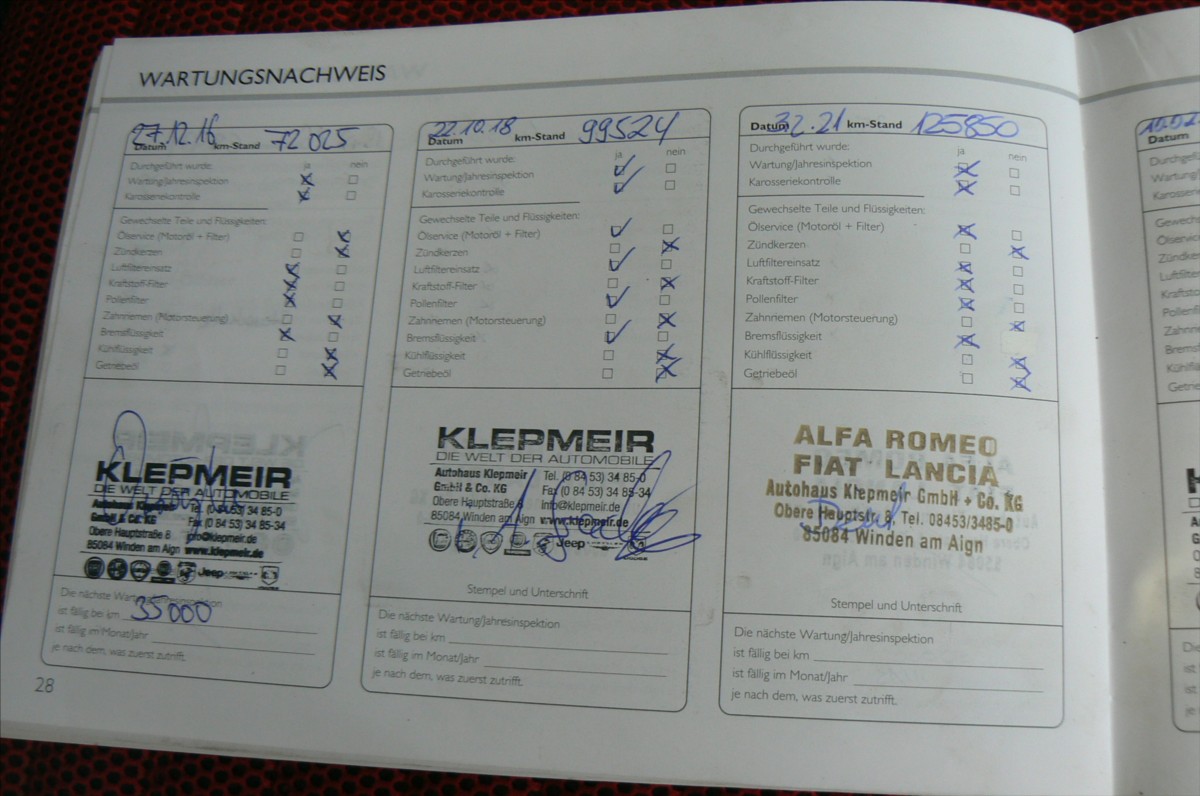 WARTUNGSNACHWEIS
27.12.16 72 025
Datum km-Stand
ja nein
Durchgeführt wurde:
Wartung/Jahresinspektion
Karosseriekontrolle
Gewechselte Teile und Flüssigkeiten:
Ölservice (Motoröl + Filter)
Zündkerzen
Luftfiltereinsatz
Kraftstoff-Filter
Pollenfilter
Zahnriemen (Motorsteuerung)
Bremsflüssigkeit
Kühlflüssigkeit
Getriebeöl
KLEPMEIR
DIE WELT DER AUTOMOBILE
Autohaus Klepmeir Tel. (0 84 53) 34 85-0
GmbH & Co. KG Fax (0 84 53) 34 85-34
Obere Hauptstraße 8 info@klepmeir.de
85084 Winden am Aign www.klepmeir.de
Jeep
Die nächste Wartung/Jahresinspektion
ist fällig bei km 35000
ist fällig im Monat/Jahr
je nach dem, was zuerst zutrifft.
28
22.10.18 99524
Datum km-Stand
ja nein
Durchgeführt wurde:
Wartung/Jahresinspektion
Karosseriekontrolle
Gewechselte Teile und Flüssigkeiten:
Ölservice (Motoröl + Filter)
Zündkerzen
Luftfiltereinsatz
Kraftstoff-Filter
Pollenfilter
Zahnriemen (Motorsteuerung)
Bremsflüssigkeit
Kühlflüssigkeit
Getriebeöl
KLEPMEIR
DIE WELT DER AUTOMOBILE
Autohaus Klepmeir Tel. (0 84 53) 34 85-0
GmbH & Co. KG Fax (0 84 53) 34 85-34
Obere Hauptstraße 8 info@klepmeir.de
85084 Winden am Aign www.klepmeir.de
Jeep
Stempel und Unterschrift
Die nächste Wartung/Jahresinspektion
ist fällig bei km
ist fällig im Monat/Jahr
je nach dem, was zuerst zutrifft.
Datum km-Stand 125850
ja nein
Durchgeführt wurde:
Wartung/Jahresinspektion
Karosseriekontrolle
Gewechselte Teile und Flüssigkeiten:
Ölservice (Motoröl + Filter)
Zündkerzen
Luftfiltereinsatz
Kraftstoff-Filter
Pollenfilter
Zahnriemen (Motorsteuerung)
Bremsflüssigkeit
Kühlflüssigkeit
Getriebeöl
ALFA ROMEO
FIAT LANCIA
Autohaus Klepmeir GmbH + Co. KG
Obere Hauptstr. 8, Tel. 08453/3485-0
85084 Winden am Aign
Stempel und Unterschrift
Die nächste Wartung/Jahresinspektion
ist fällig bei km
ist fällig im Monat/Jahr
je nach dem, was zuerst zutrifft.
Datum